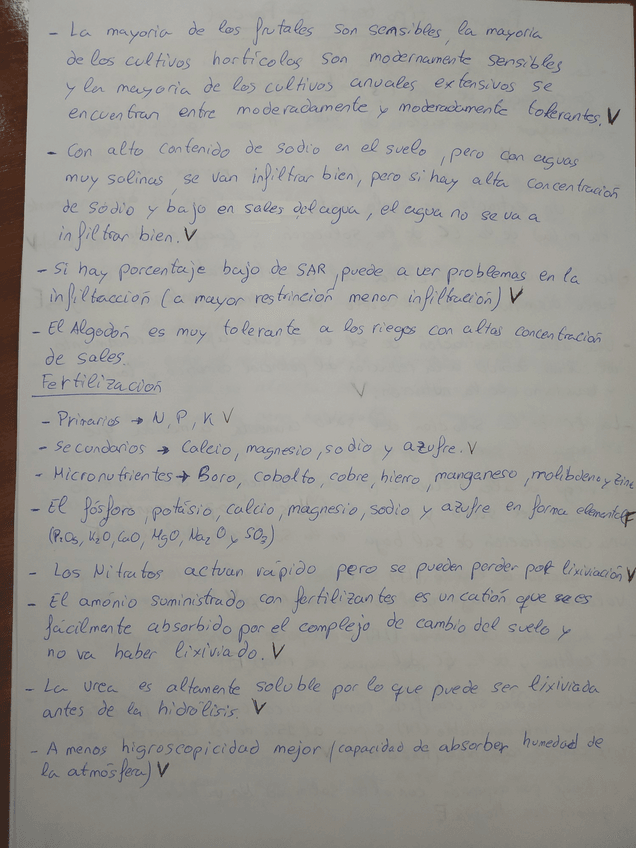 - La mayoria de los frutales son sensibles, la mayoria
de los cultivos hortícolas son modernamente sensibles
y la mayoria de los cultivos anuales extensivos se
encuentran entre moderadamente y moderadamente tolerantes. V
- Con alto contenido de sodio en el suelo, pero con aguas
muy salinas, se van infiltrar bien, pero si hay alta concentración
de sodio y bajo en sales del agua, el agua no se va a
infiltrar bien. V
- Si hay porcentaje bajo de SAR, puede a ver problemas en la
infiltacción (a mayor restrinción menor infiltración) V
- El Algodón es muy tolerante a los riegos con altas concentración
de sales.
Fertilización
V
- Primarios → N, P, K V
- Secundarios → Calcio, magnesio, sodio y azufre. V
- Micronutrientes → Boro, cobolto, cobre, hierro, manganeso, molibdeno y zinc
- El fósforo, potásio, calcio, magnesio, sodio y azufre en forma elemental F
(P2O5, K2O, CaO, MgO, Na2O y SO3)
- Los Nitratos actuan rápido pero se pueden perder por lixiviación V
- El amónio suministrado con fertilizantes es un catión que es
fácilmente absorbido por el complejo de cambio del suelo y
no va haber lixiviado. V
- La urea es altamente soluble por lo que puede ser lixiviada
antes de la hidrólisis. V
- A menos higroscopicidad mejor (capacidad de absorber humedad de
la atmósfera) V